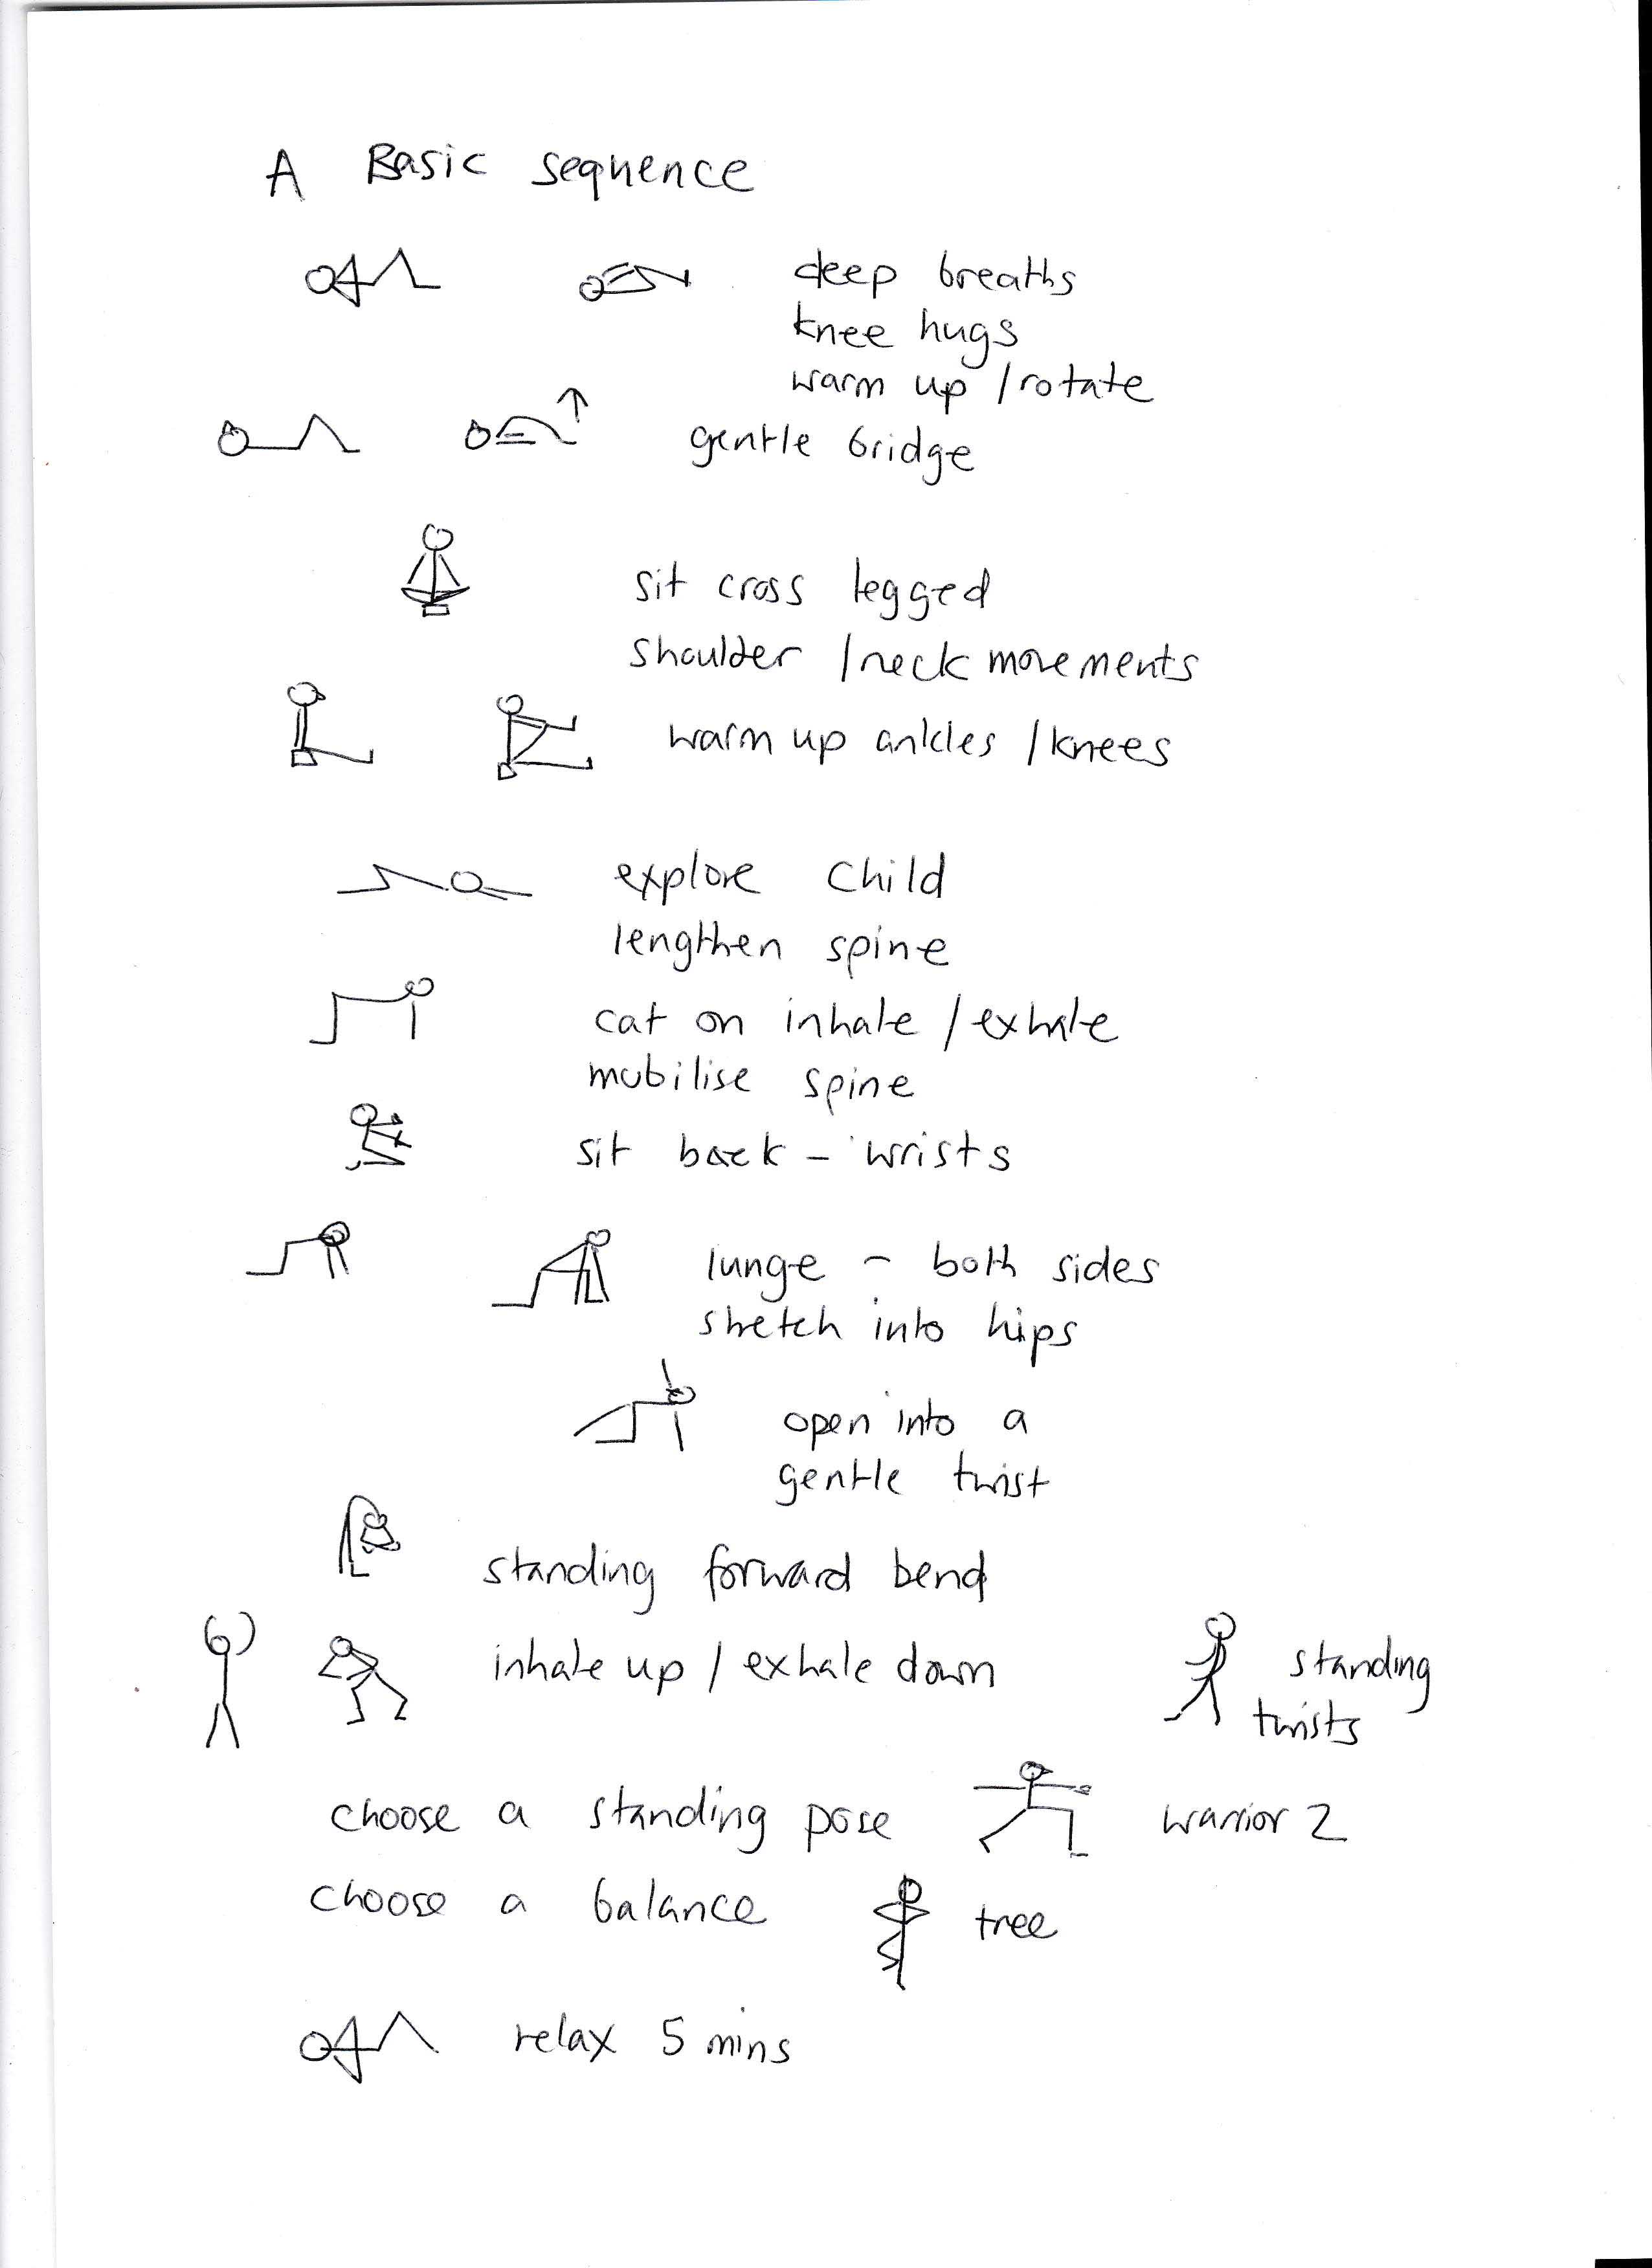 A Basic sequence
deep breaths
knee hugs
warm up / rotate
gentle bridge
sit cross legged
shoulder / neck movements
warm up ankles / knees
explore Child
lengthen spine
cat on inhale / exhale
mobilise spine
sit back - wrists
lunge - both sides
stretch into hips
open into a
gentle twist
standing forward bend
inhale up / exhale down
standing
twists
choose a standing pose
warrior 2
choose a balance
tree
relax 5 mins